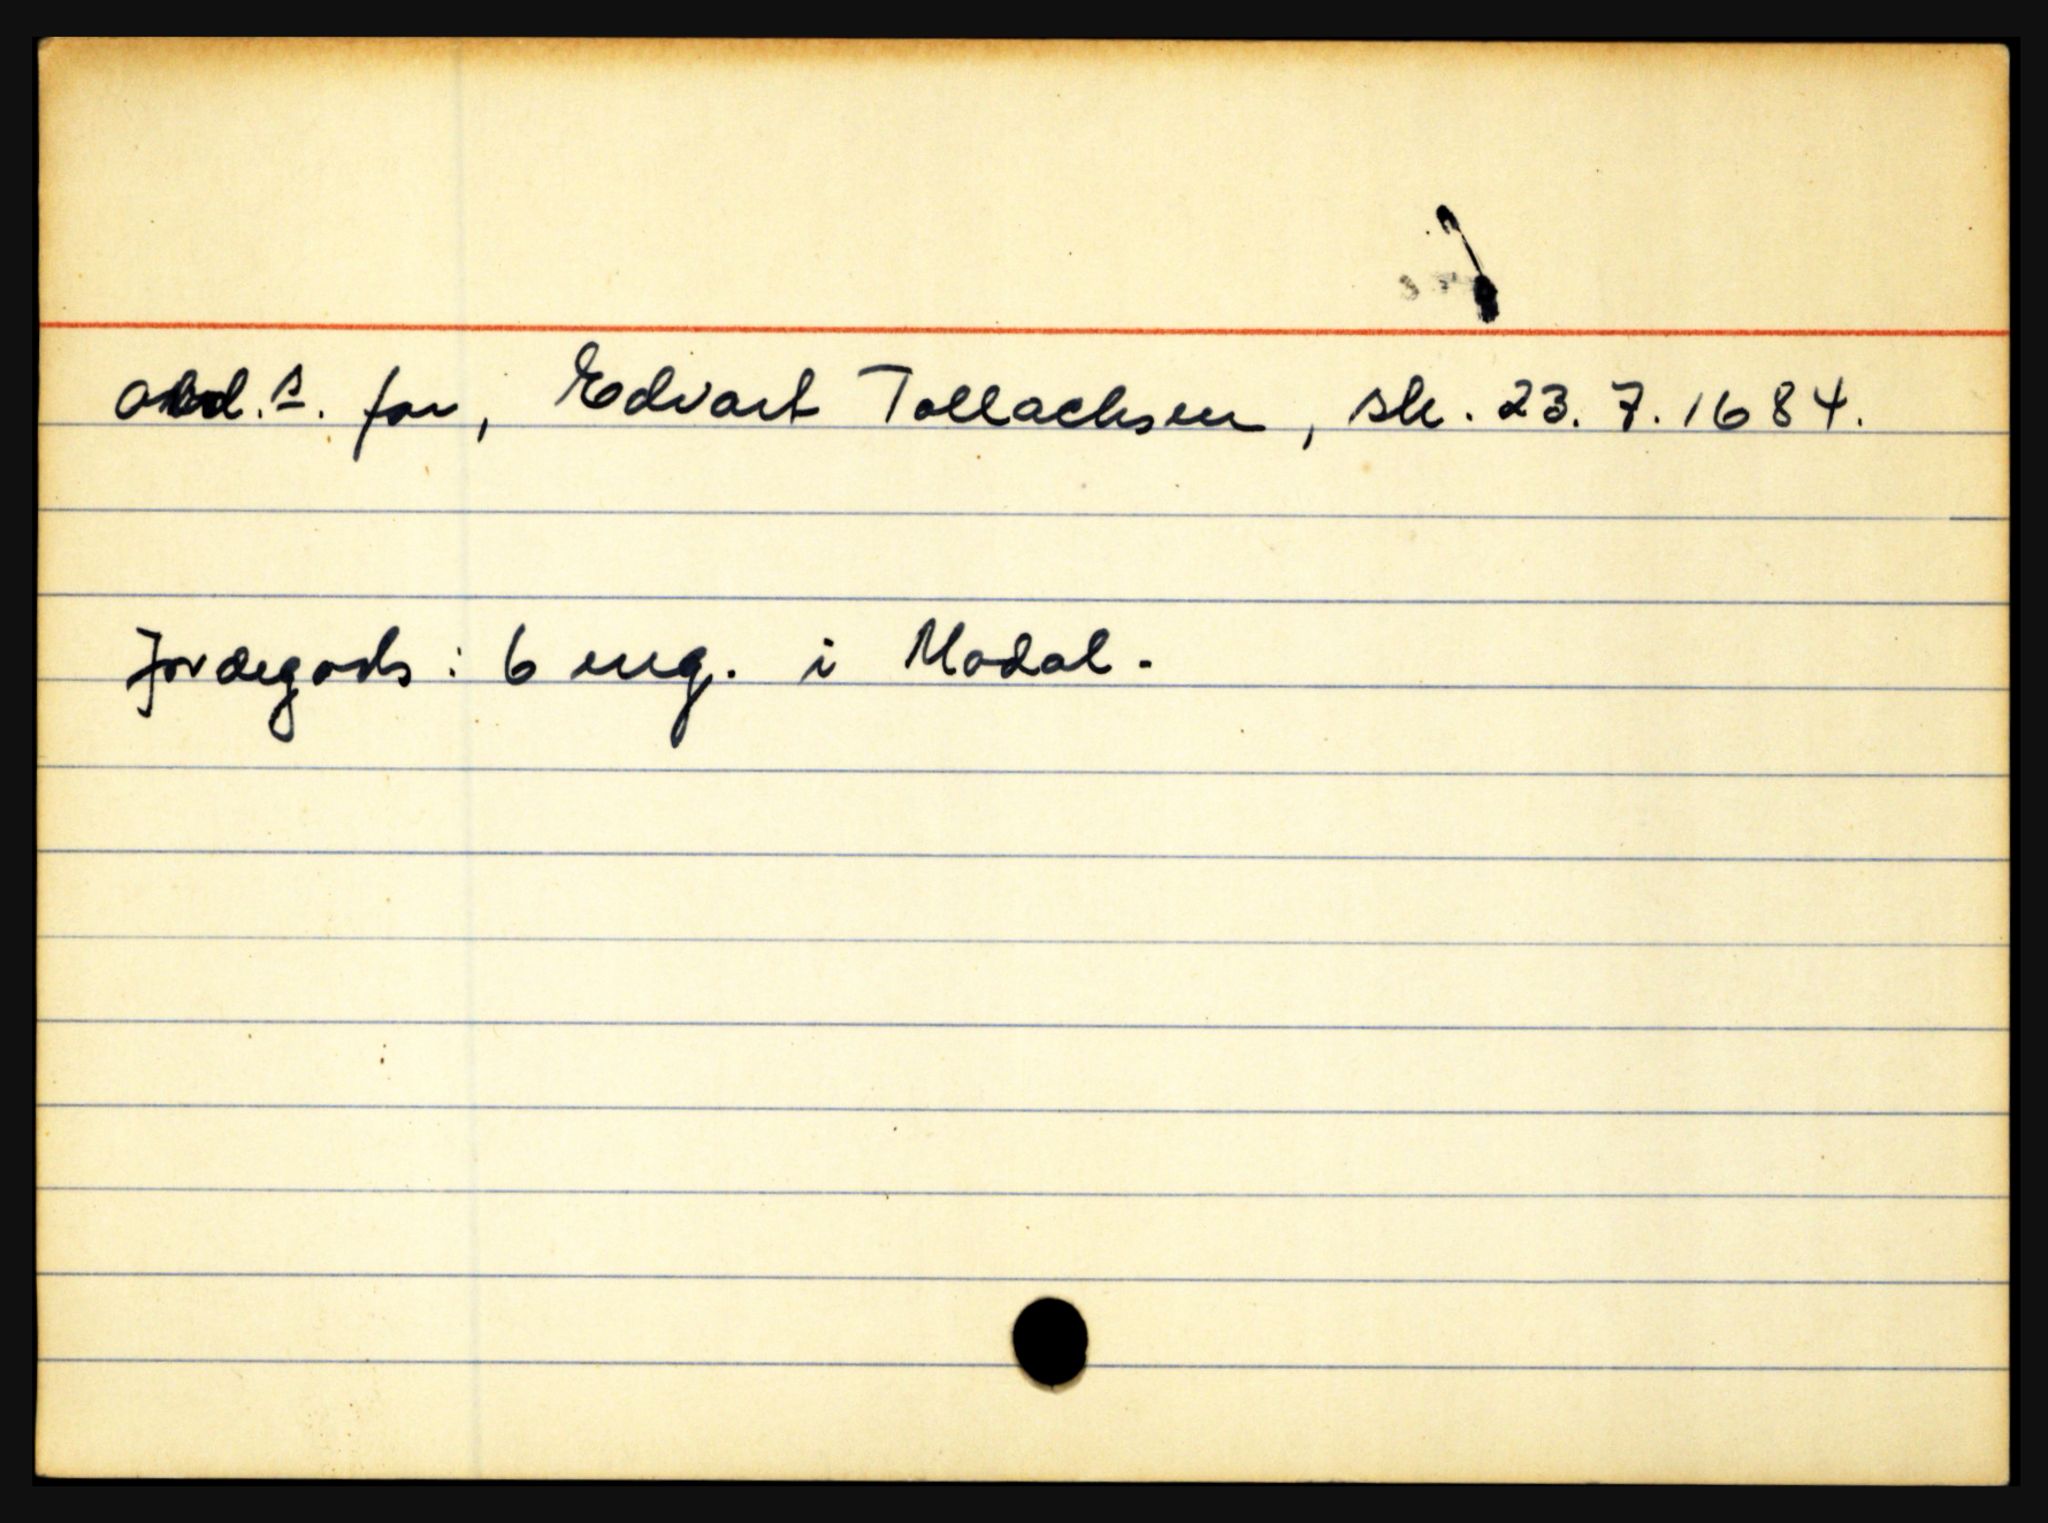 for, Edvart Tollachsen, sk. 23. 7. 1684.
Jordegods: 6 eng. i Modal.